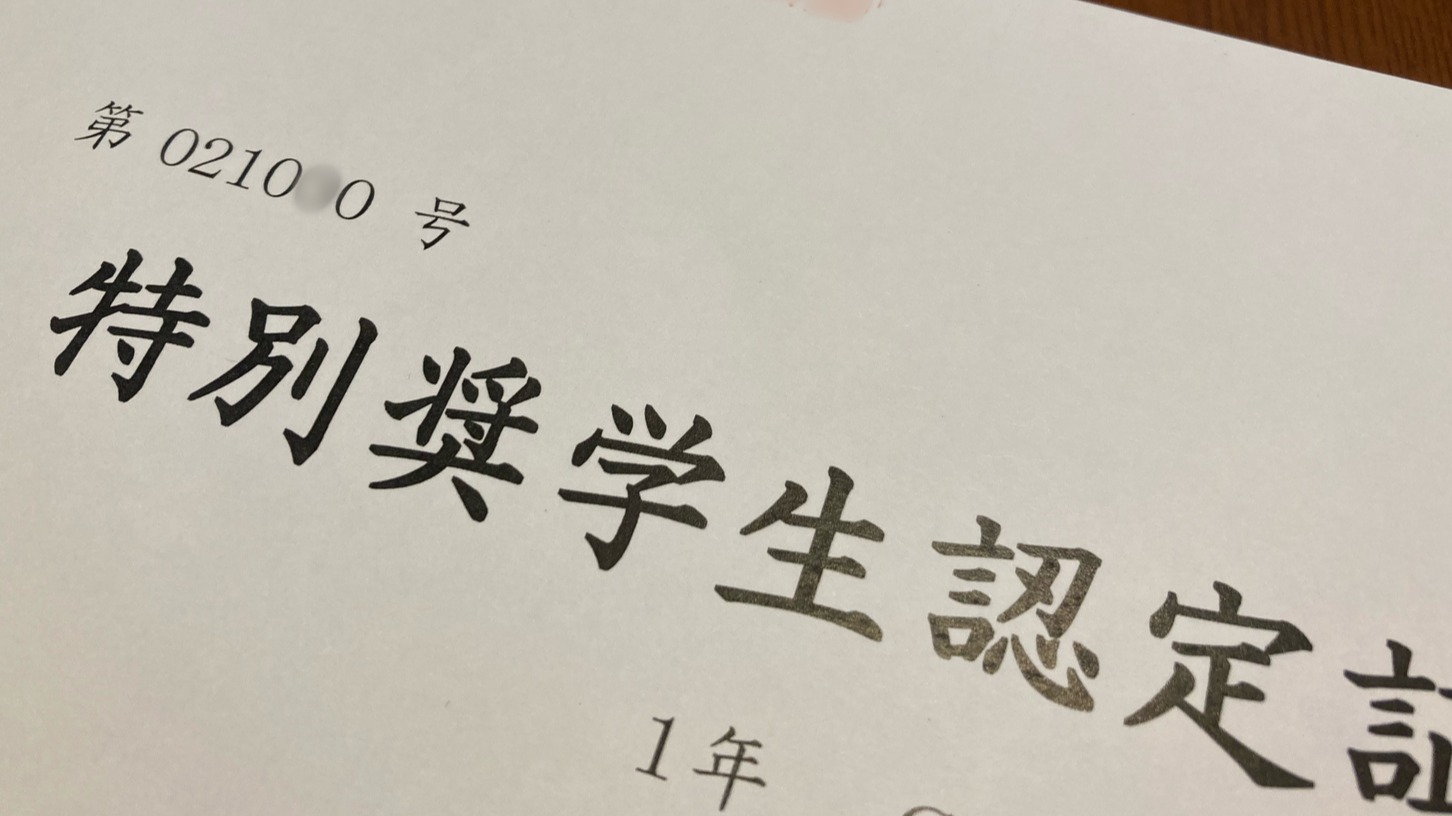 第 0210 0 号
特別奨学生認定証
1年